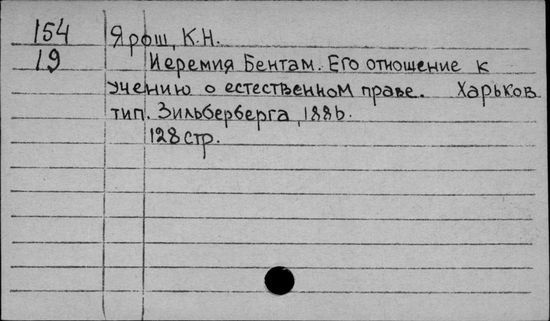 154 Ярош, К.Н.
19 Иеремия Бентам. Его отношение к
учению о естественном праве. Харьков
тип. Зильберберга, 1886.
128 стр.